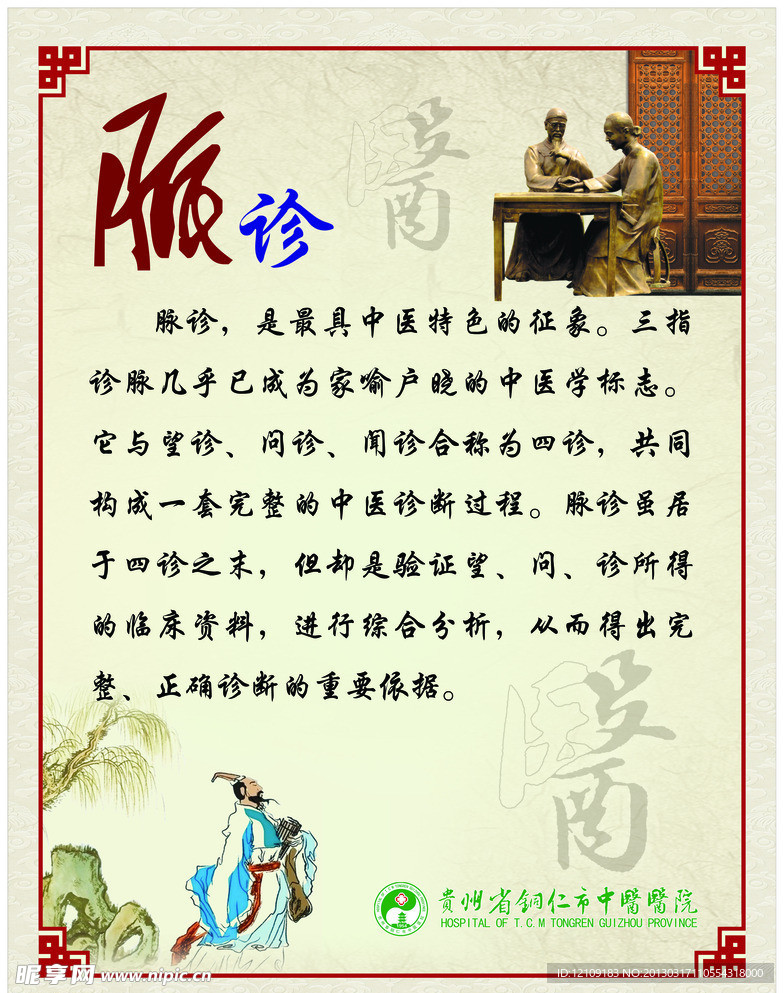 脉诊
醫
脉诊，是最具中医特色的征象。三指
诊脉几乎已成为家喻户晓的中医学标志。
它与望诊、问诊、闻诊合称为四诊，共同
构成一套完整的中医诊断过程。脉诊虽居
于四诊之末，但却是验证望、问、诊所得
的临床资料，进行综合分析，从而得出完
整、正确诊断的重要依据。
醫
貴州省铜仁市中醫醫院
HOSPITAL OF T.C.M TONGREN GUIZHOU PROVINCE
昵享网 www.nipic.cn
ID:12109183 NO:20130317110554318000